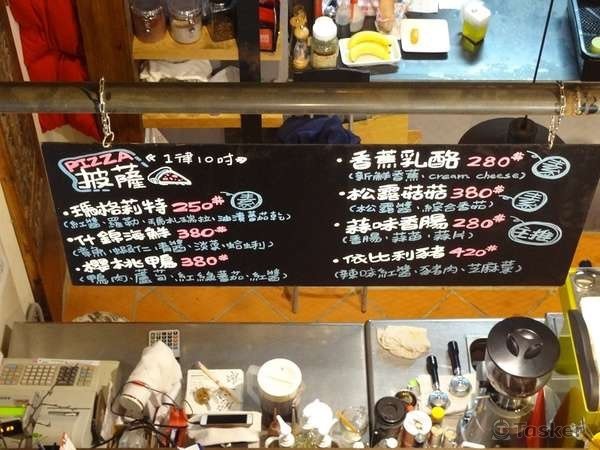 PIZZA
披薩
1律10吋
瑪格莉特 250
素
(紅醬、羅勒、瑪札瑞拉、油漬蕃茄乾)
什錦海鮮 380
櫻桃鴨 380
(鴨肉、蘆筍、紅綠蕃茄、紅醬)
香蕉乳酪 280
素
(新鮮香蕉、cream cheese)
松露菇菇 380
素
(松露醬、綜合菇菇)
蒜味香腸 280
(香腸、蒜苗、蒜片)
主推
依比利豬 420
(辣味紅醬、豬肉、芝麻葉)
Tasker